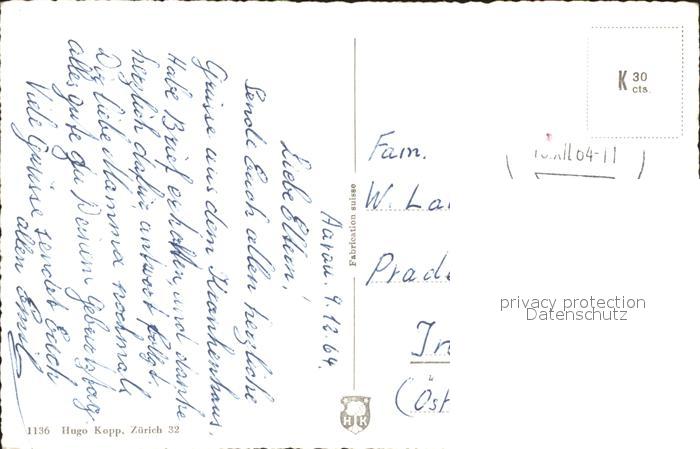 Aarau. 9.12.64.
Liebe Eltern,
Sende Euch allen herzliche
Grüsse aus dem Krankenhaus.
Habe Brief erhalten, und danke
herzlich dafür, antwort folgt.
Dir liebe Mamma nochmals
alles gute zu Deinem Geburtstag.
Viele Grüsse sendet Euch
allen Emil
Fabrication suisse
K 30
cts.
XII 64-11
Fam.
W. La
Prad
In
(Öst
privacy protection
Datenschutz
H K
1136 Hugo Kopp, Zürich 32